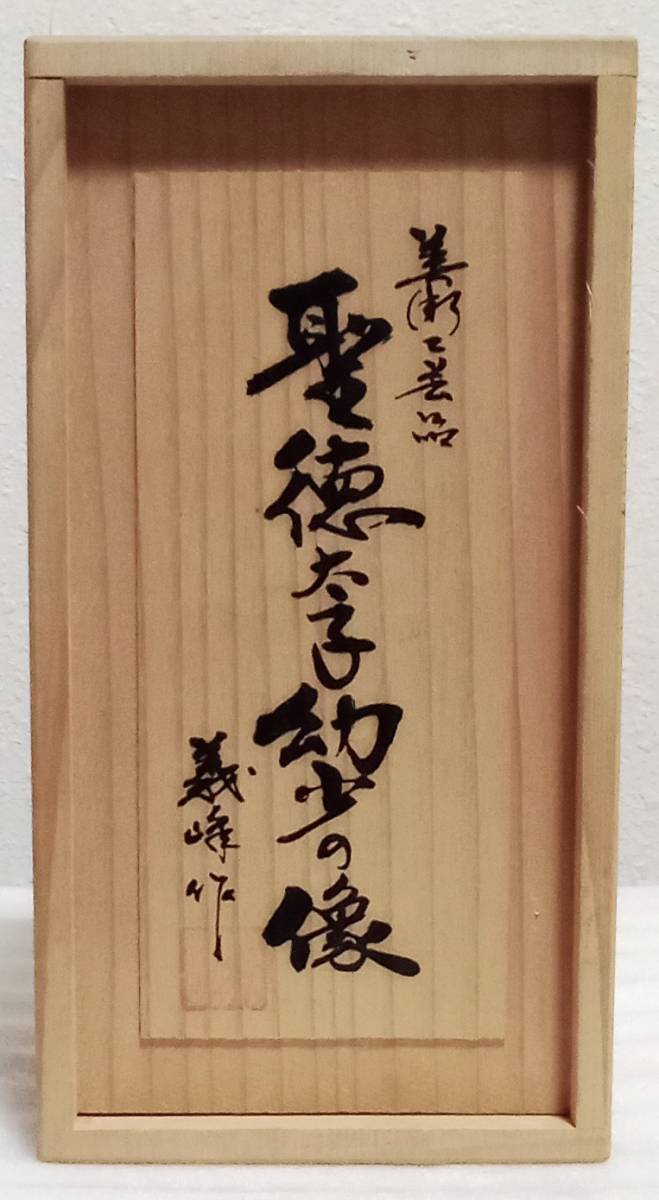 美術工芸品
聖徳太子幼少の像
義峰作